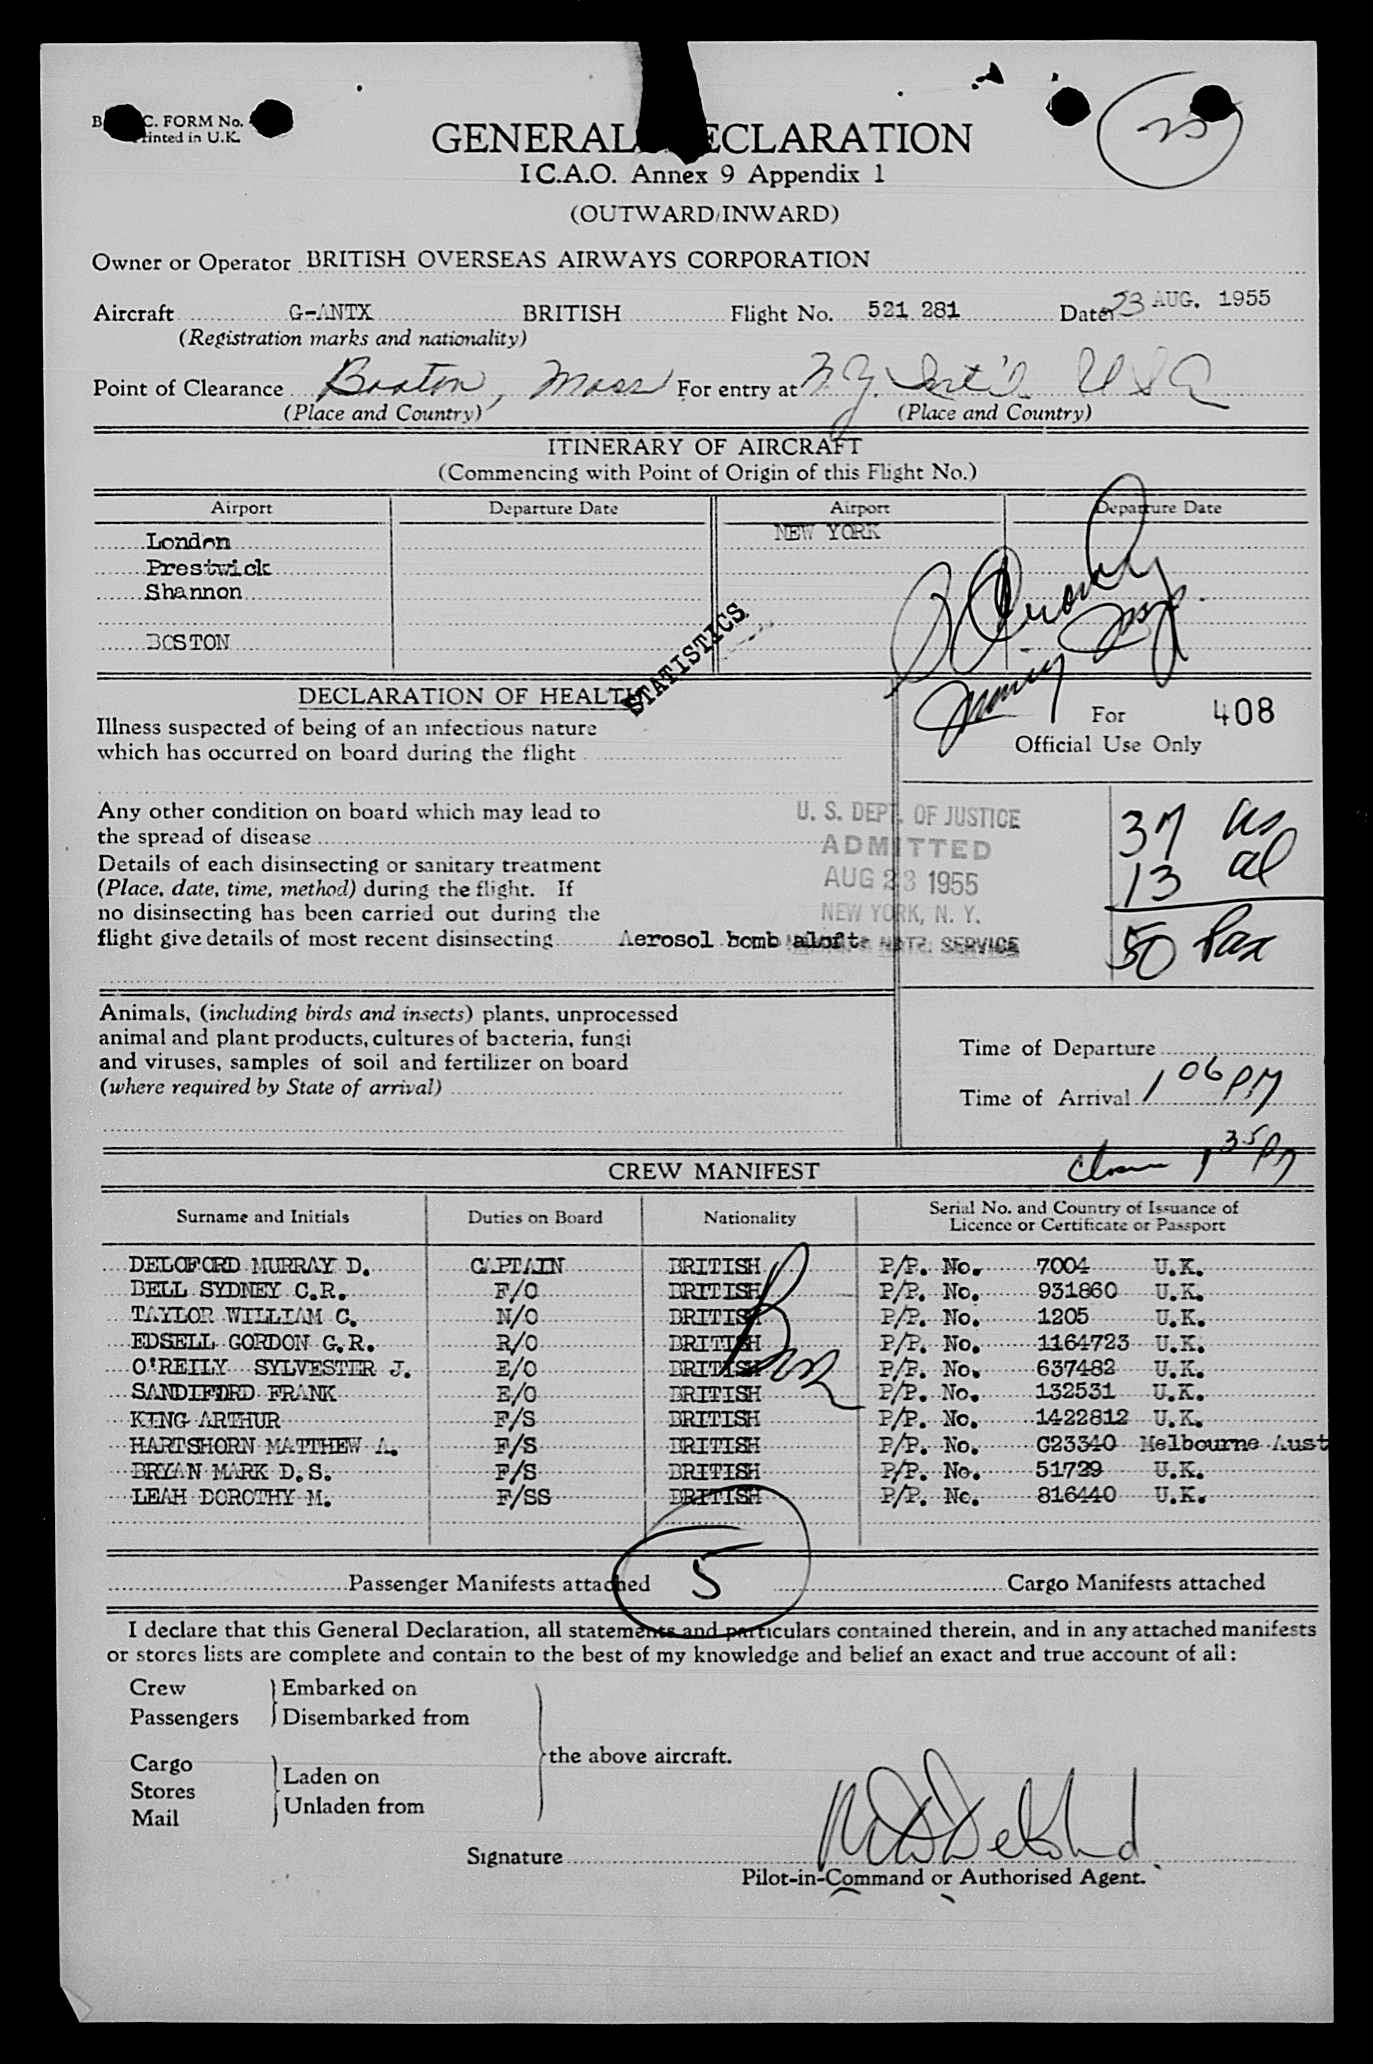 C. FORM No.
Printed in U.K.
25
GENERAL DECLARATION
I.C.A.O. Annex 9 Appendix 1
(OUTWARD/INWARD)
Owner or Operator BRITISH OVERSEAS AIRWAYS CORPORATION
Aircraft G-ANTX BRITISH Flight No. 521 281 Date 23 AUG. 1955
(Registration marks and nationality)
Point of Clearance Boston, Mass For entry at N.Y. Int'l. USA
(Place and Country) (Place and Country)
ITINERARY OF AIRCRAFT
(Commencing with Point of Origin of this Flight No.)
Airport Departure Date Airport Departure Date
London NEW YORK
Prestwick
Shannon
BOSTON
STATISTICS
DECLARATION OF HEALTH
Illness suspected of being of an infectious nature
which has occurred on board during the flight
For 408
Official Use Only
Any other condition on board which may lead to
the spread of disease
Details of each disinsecting or sanitary treatment
(Place, date, time, method) during the flight. If
no disinsecting has been carried out during the
flight give details of most recent disinsecting Aerosol bomb aloft
U. S. DEPT. OF JUSTICE
ADMITTED
AUG 23 1955
NEW YORK, N. Y.
NATZ. SERVICE
37 us
13 al
50 Pax
Animals, (including birds and insects) plants, unprocessed
animal and plant products, cultures of bacteria, fungi
and viruses, samples of soil and fertilizer on board
(where required by State of arrival)
Time of Departure
Time of Arrival 1 06 PM
1 35 PM
CREW MANIFEST
Surname and Initials Duties on Board Nationality Serial No. and Country of Issuance of
Licence or Certificate or Passport
DELOFORD MURRAY D. CAPTAIN BRITISH P/P. No. 7004 U.K.
BELL SYDNEY C.R. F/O BRITISH P/P. No. 931860 U.K.
TAYLOR WILLIAM C. N/O BRITISH P/P. No. 1205 U.K.
EDSELL GORDON G.R. R/O BRITISH P/P. No. 1164723 U.K.
O'REILY SYLVESTER J. E/O BRITISH P/P. No. 637482 U.K.
SANDIFORD FRANK E/O BRITISH P/P. No. 132531 U.K.
KING ARTHUR F/S BRITISH P/P. No. 1422812 U.K.
HARTSHORN MATTHEW A. F/S BRITISH P/P. No. G23340 Melbourne Aust
BRYAN MARK D.S. F/S BRITISH P/P. No. 51729 U.K.
LEAH DOROTHY M. F/SS BRITISH P/P. No. 816440 U.K.
Passenger Manifests attached 5 Cargo Manifests attached
I declare that this General Declaration, all statements and particulars contained therein, and in any attached manifests
or stores lists are complete and contain to the best of my knowledge and belief an exact and true account of all:
Crew Embarked on
Passengers Disembarked from
the above aircraft.
Cargo
Stores Laden on
Mail Unladen from
Signature
Pilot-in-Command or Authorised Agent.